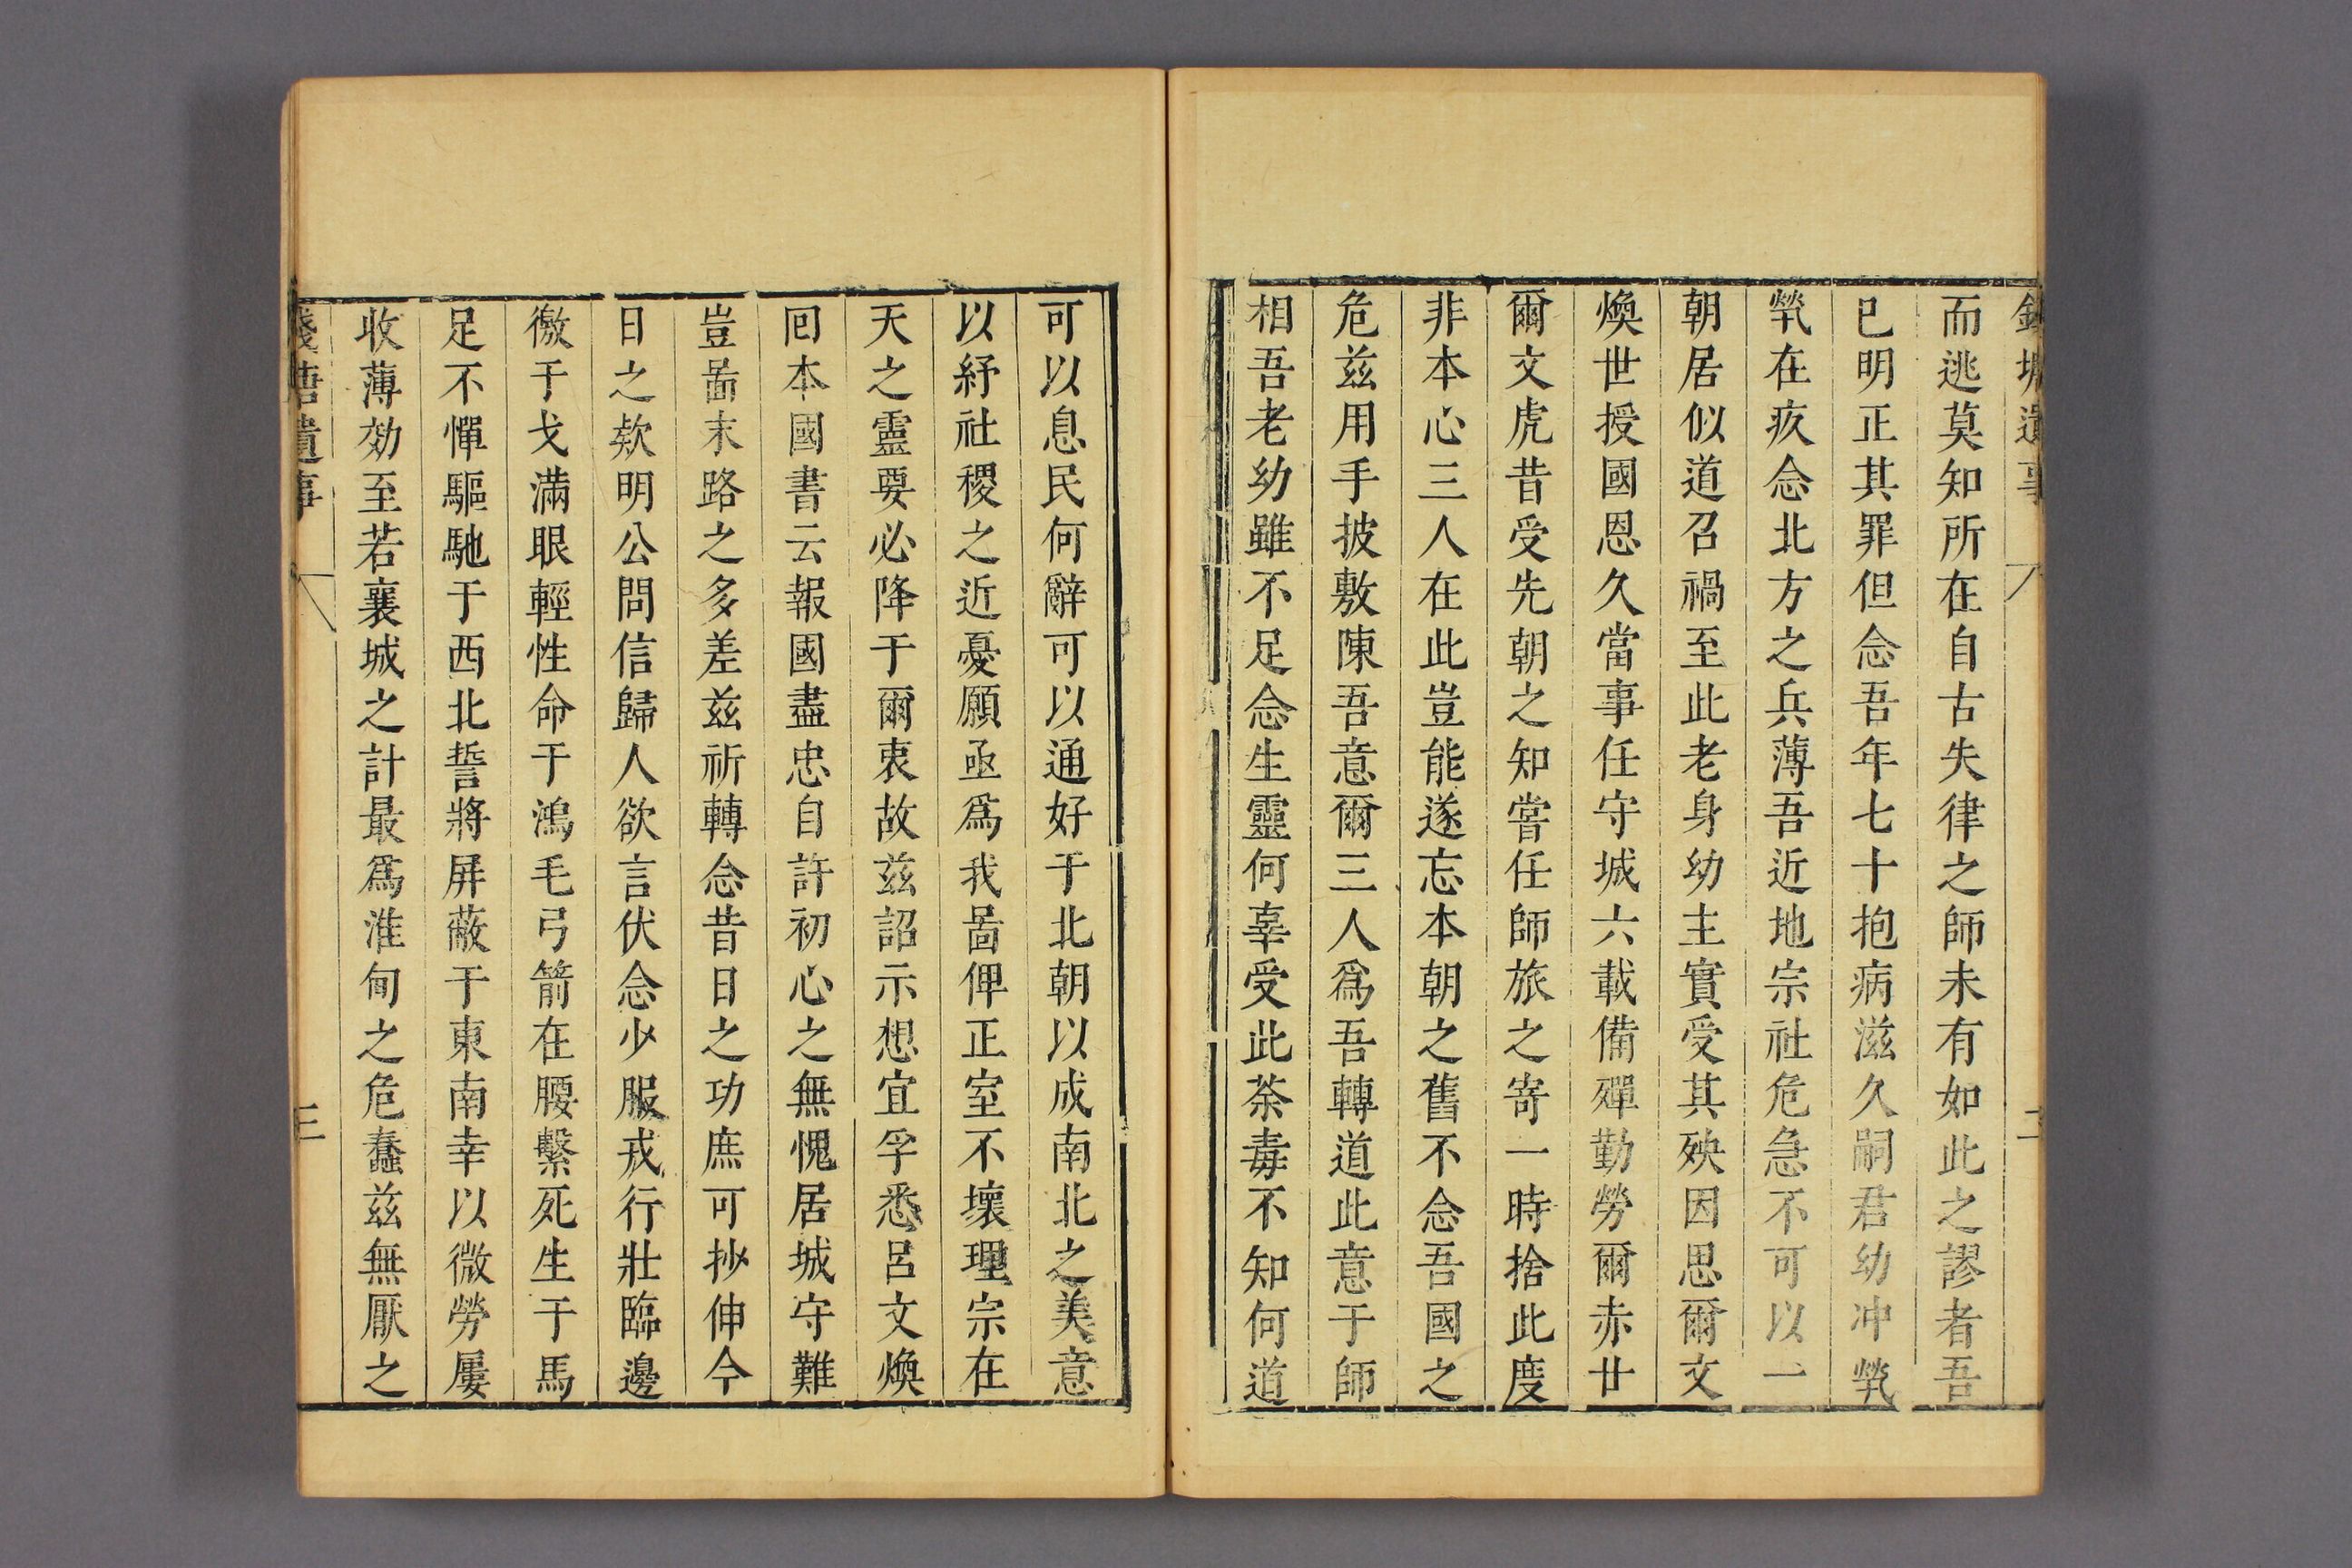 錢塘遺事 二
而逃莫知所在自古失律之師未有如此之謬者吾
已明正其罪但念吾年七十抱病滋久嗣君幼冲煢
煢在疚念北方之兵薄吾近地宗社危急不可以一
朝居似道召禍至此老身幼主實受其殃因思爾文
煥世授國恩久當事任守城六載備殫勤勞爾赤廿
爾文虎昔受先朝之知嘗任師旅之寄一時捨此度
非本心三人在此豈能遂忘本朝之舊不念吾國之
危兹用手披敷陳吾意爾三人爲吾轉道此意于師
相吾老幼雖不足念生靈何辜受此荼毒不知何道
可以息民何辭可以通好于北朝以成南北之美意
以紓社稷之近憂願亟爲我啚俾正室不壞理宗在
天之靈要必降于爾衷故兹詔示想宜孚悉呂文煥
囘本國書云報國盡忠自許初心之無愧居城守難
豈啚末路之多差兹祈轉念昔日之功庶可抄伸今
日之欵明公問信歸人欲言伏念少服戎行壯臨邊
徼于戈滿眼輕性命于鴻毛弓箭在腰繫死生于馬
足不憚驅馳于西北誓將屏蔽于東南幸以微勞屢
收薄効至若襄城之計最爲淮甸之危蠢兹無厭之
錢塘遺事 三